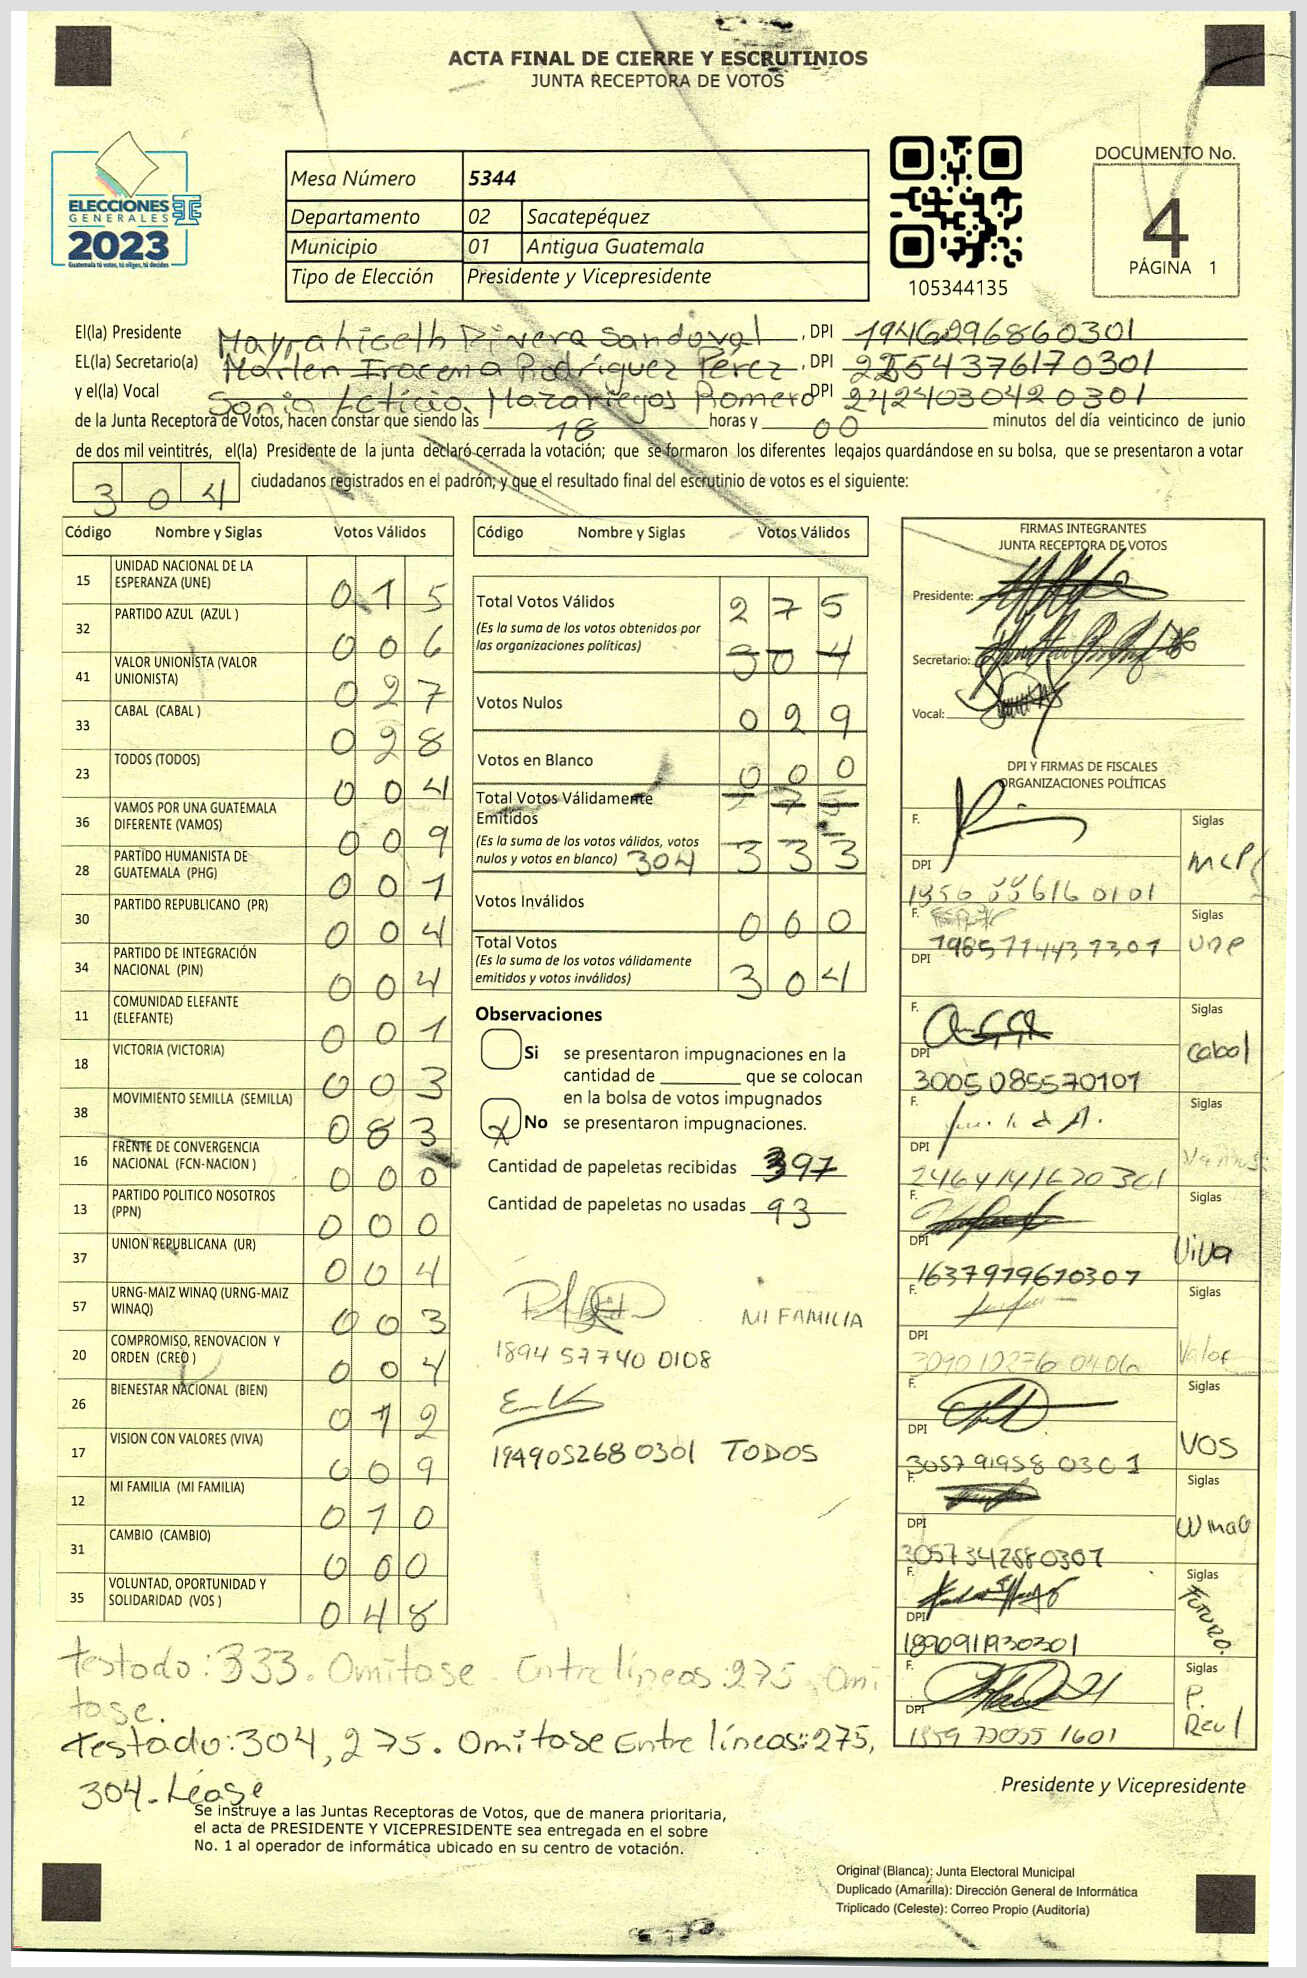 ACTA FINAL DE CIERRE Y ESCRUTINIOS
JUNTA RECEPTORA DE VOTOS
ELECCIONES
GENERALES
2023
Guatemala tú votes, tú eliges, tú decides
Mesa Número 5344
Departamento 02 Sacatepéquez
Municipio 01 Antigua Guatemala
Tipo de Elección Presidente y Vicepresidente
105344135
DOCUMENTO No.
4
PÁGINA 1
El(la) Presidente Rivera Sandoval , DPI 1946296860301
EL(la) Secretario(a) Marlen Iracema Rodríguez Pérez , DPI 2254376170301
y el(la) Vocal Sonia Leticia Mazariegos Romero DPI 2424030420301
de la Junta Receptora de Votos, hacen constar que siendo las 18 horas y 00 minutos del día veinticinco de junio
de dos mil veintitrés, el(la) Presidente de la junta declaró cerrada la votación; que se formaron los diferentes legajos quardándose en su bolsa, que se presentaron a votar
304 ciudadanos registrados en el padrón; y que el resultado final del escrutinio de votos es el siguiente:
Código Nombre y Siglas Votos Válidos
15 UNIDAD NACIONAL DE LA ESPERANZA (UNE) 015
32 PARTIDO AZUL (AZUL ) 006
41 VALOR UNIONISTA (VALOR UNIONISTA) 027
33 CABAL (CABAL ) 028
23 TODOS (TODOS) 004
36 VAMOS POR UNA GUATEMALA DIFERENTE (VAMOS) 009
28 PARTIDO HUMANISTA DE GUATEMALA (PHG) 001
30 PARTIDO REPUBLICANO (PR) 004
34 PARTIDO DE INTEGRACIÓN NACIONAL (PIN) 004
11 COMUNIDAD ELEFANTE (ELEFANTE) 001
18 VICTORIA (VICTORIA) 003
38 MOVIMIENTO SEMILLA (SEMILLA) 083
16 FRENTE DE CONVERGENCIA NACIONAL (FCN-NACION ) 000
13 PARTIDO POLITICO NOSOTROS (PPN) 000
37 UNION REPUBLICANA (UR) 004
57 URNG-MAIZ WINAQ (URNG-MAIZ WINAQ) 003
20 COMPROMISO, RENOVACION Y ORDEN (CREO ) 004
26 BIENESTAR NACIONAL (BIEN) 012
17 VISION CON VALORES (VIVA) 009
12 MI FAMILIA (MI FAMILIA) 010
31 CAMBIO (CAMBIO) 000
35 VOLUNTAD, OPORTUNIDAD Y SOLIDARIDAD (VOS ) 048
Código Nombre y Siglas Votos Válidos
Total Votos Válidos 275
(Es la suma de los votos obtenidos por
las organizaciones políticas) 304
Votos Nulos 029
Votos en Blanco 000
Total Votos Válidamente
Emitidos
(Es la suma de los votos válidos, votos
nulos y votos en blanco) 304 333
Votos Inválidos 000
Total Votos
(Es la suma de los votos válidamente
emitidos y votos inválidos) 304
Observaciones
Si se presentaron impugnaciones en la
cantidad de ________ que se colocan
en la bolsa de votos impugnados
X No se presentaron impugnaciones.
Cantidad de papeletas recibidas 397
Cantidad de papeletas no usadas 93
MI FAMILIA
1894 57740 0108
194905268 0301 TODOS
FIRMAS INTEGRANTES
JUNTA RECEPTORA DE VOTOS
Presidente:
Secretario:
Vocal:
DPI Y FIRMAS DE FISCALES
ORGANIZACIONES POLÍTICAS
F. Siglas
DPI MLP
F. Siglas
DPI une
F. Siglas
DPI 3005085570101 Cabal
F. Siglas
DPI 2464141620301 Vamos
F. Siglas
DPI 1637979670307 Viva
F. Siglas
DPI 309010276 0406 Valor
F. Siglas
DPI 3057919580301 VOS
F. Siglas
DPI 3057342880307 WinaQ
F. Siglas
DPI FUTURO.
F. Siglas
DPI P.
Testado: 333. Omitase. Entre líneas: 275, Omi
tase.
Testado: 304, 275. Omitase Entre líneas: 275,
304. Léase
Presidente y Vicepresidente
Se instruye a las Juntas Receptoras de Votos, que de manera prioritaria,
el acta de PRESIDENTE Y VICEPRESIDENTE sea entregada en el sobre
No. 1 al operador de informática ubicado en su centro de votación.
Original (Blanca): Junta Electoral Municipal
Duplicado (Amarilla): Dirección General de Informática
Triplicado (Celeste): Correo Propio (Auditoría)